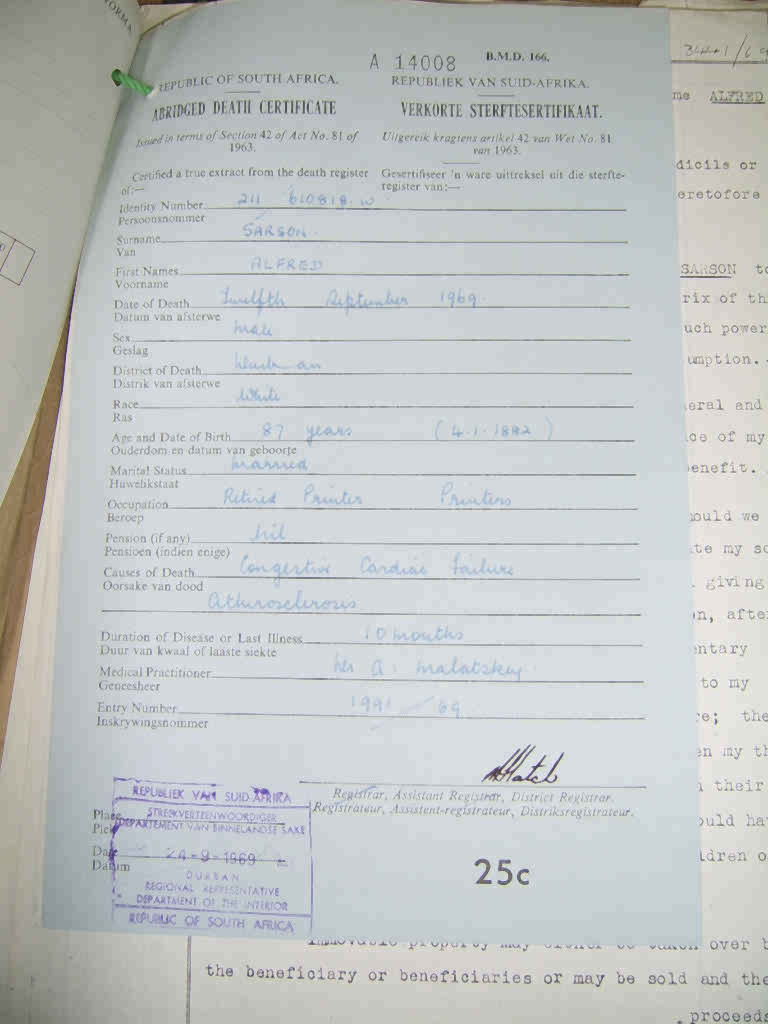 A 14008 B.M.D. 166.
REPUBLIC OF SOUTH AFRICA. REPUBLIEK VAN SUID-AFRIKA.
ABRIDGED DEATH CERTIFICATE VERKORTE STERFTESERTIFIKAAT.
Issued in terms of Section 42 of Act No. 81 of 1963. Uitgereik kragtens artikel 42 van Wet No. 81 van 1963.
Certified a true extract from the death register of:— Gesertifiseer 'n ware uittreksel uit die sterfte-register van:—
Identity Number 211 610818 W
Persoonsnommer
Surname SARSON
Van
First Names ALFRED
Voorname
Date of Death Twelfth September 1969
Datum van afsterwe
Sex Male
Geslag
District of Death
Distrik van afsterwe
Race White
Ras
Age and Date of Birth 87 years (4.1.1882)
Ouderdom en datum van geboorte
Marital Status Married
Huwelikstaat
Occupation Retired Printer Printers
Beroep
Pension (if any) Nil
Pensioen (indien enige)
Causes of Death Congestive Cardiac Failure
Oorsake van dood
Atherosclerosis
Duration of Disease or Last Illness 10 months
Duur van kwaal of laaste siekte
Medical Practitioner A. Malatskey
Geneesheer
Entry Number 1991 69
Inskrywingsnommer
Registrar, Assistant Registrar, District Registrar.
Registrateur, Assistent-registrateur, Distriksregistrateur.
Place
Plek
Date
Datum
REPUBLIEK VAN SUID AFRIKA
STREEKVERTEENWOORDIGER
DEPARTEMENT VAN BINNELANDSE SAKE
24-9-1969
DURBAN
REGIONAL REPRESENTATIVE
DEPARTMENT OF THE INTERIOR
REPUBLIC OF SOUTH AFRICA
25c
ALFRED
dicils or
eretofore
SARSON to
rix of th
uch power
umption.
eral and
ce of my
benefit.
ould we
te my so
giving
n, after
entary
to my
re; the
en my th
their
ould ha
ldren o
immovable property may either be taken over b
the beneficiary or beneficiaries or may be sold and the
proceeds